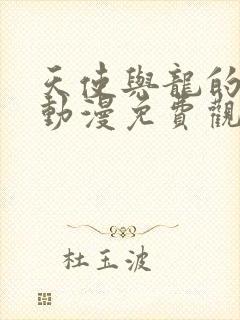 天使與龍的
動漫免費觀
杜玉波